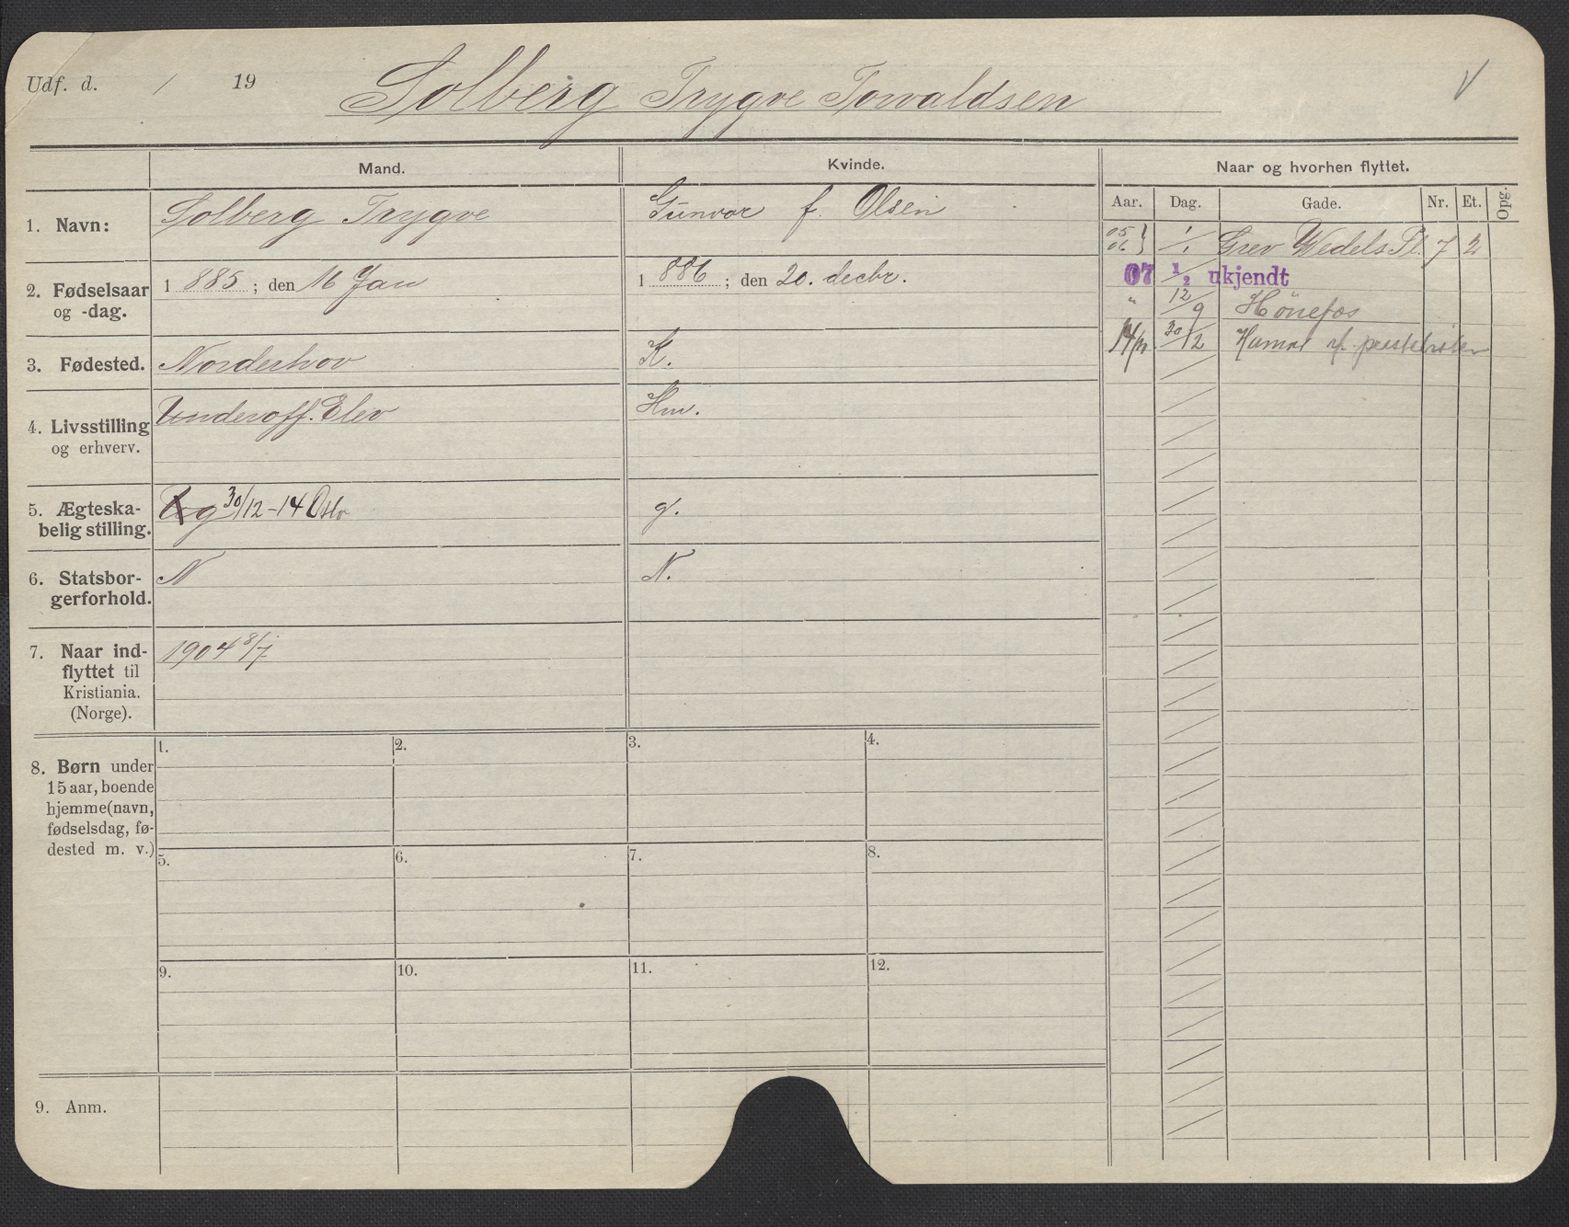 Udf. d. / 19 Solberg Trygve Torvaldsen V
Mand. Kvinde. Naar og hvorhen flyttet.
Aar. Dag. Gade. Nr. Et. Opg.
1. Navn: Solberg Trygve Gunvor f. Olsen
05 06 } 1/1 Grev Wedels Pl. 7 2
2. Fødselsaar og -dag. 1 885 ; den 16 Jan 1 886 ; den 20. decbr.
07 1/2 ukjendt
" 12/9 Hönefos
3. Fødested. Norderhov K.
14 30/12 Hamar
4. Livsstilling og erhverv. Underoff. Elev Hm.
5. Ægteska-
belig stilling. g 30/12-14 Oslo g.
6. Statsbor-
gerforhold. N N.
7. Naar ind-
flyttet til
Kristiania.
(Norge). 1904 8/7
8. Børn under
15 aar, boende
hjemme (navn,
fødselsdag, fø-
dested m. v.)
1. 2. 3. 4.
5. 6. 7. 8.
9. 10. 11. 12.
9. Anm.